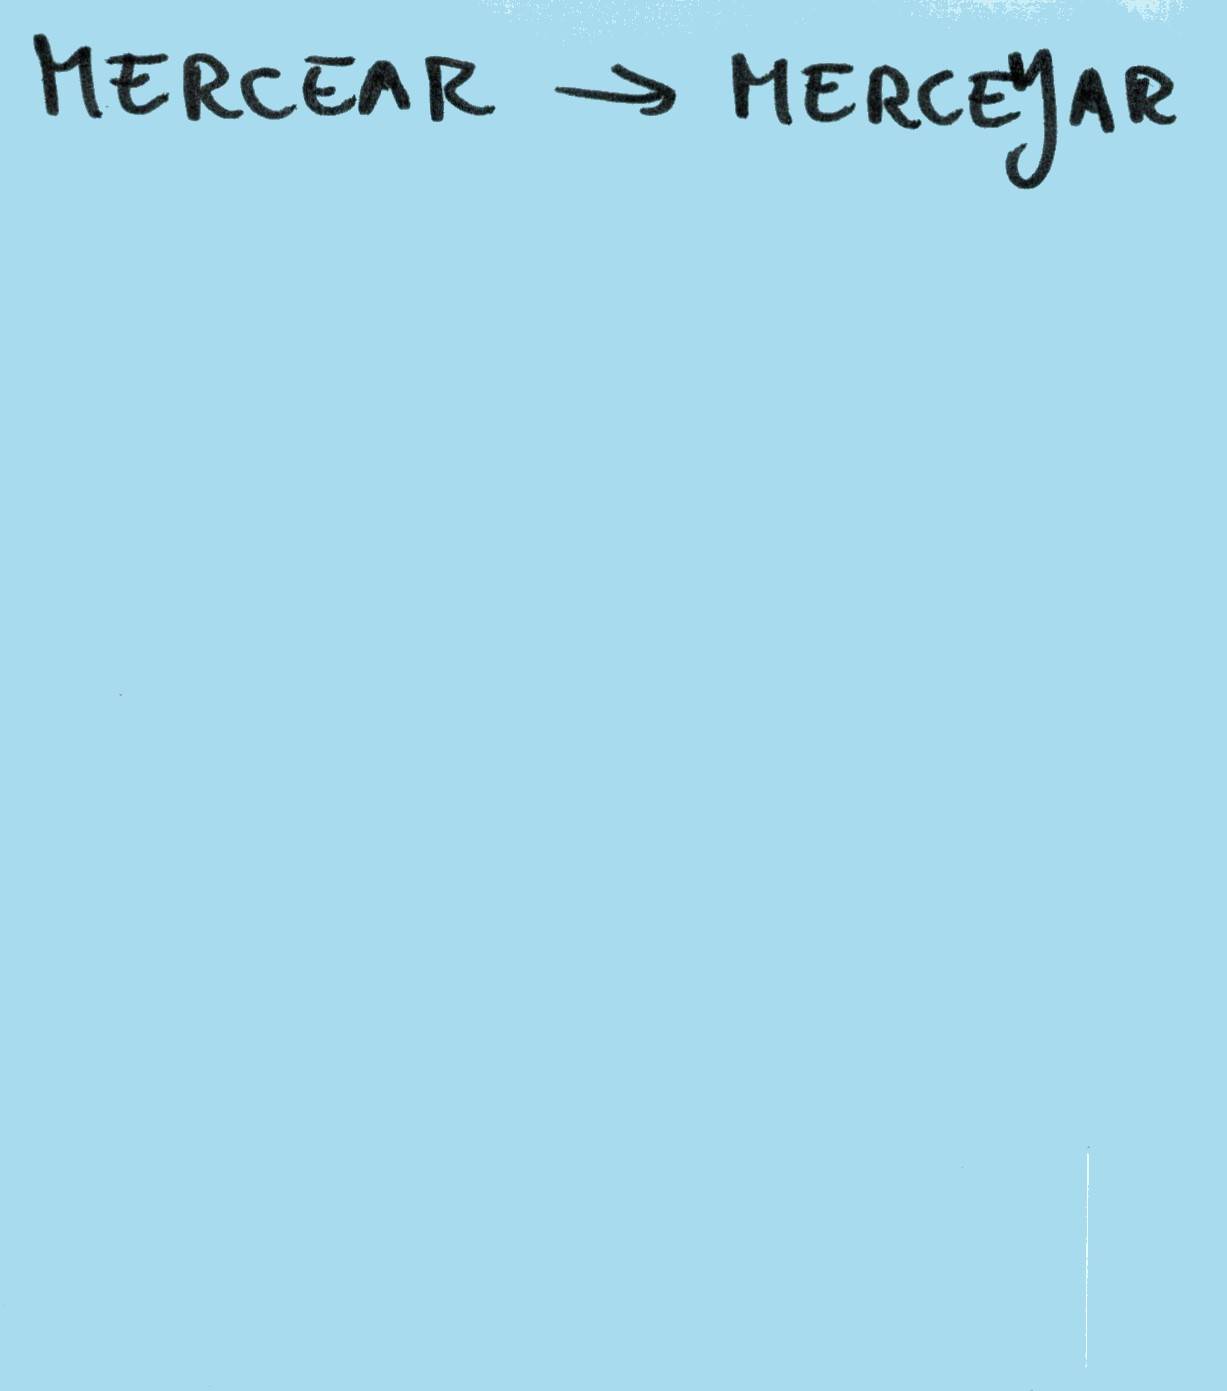 MERCEAR → MERCEYAR